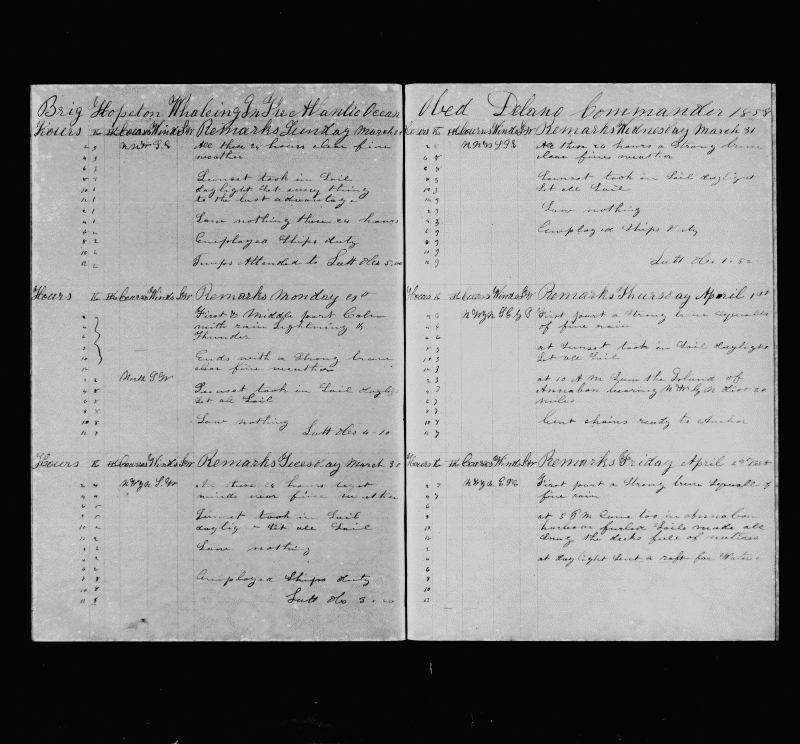 Brig Hopeton Whaleing In The Atlantic Ocean
Hours K HK Courses Winds Remarks Sunday March
NNW SE All these 24 hours clear fine
weather
Sunset took in Sail
daylight Set every thing
to the best advantage
Saw nothing these 24 hours
Employed Ships duty
Pumps Attended to Latt Obs 5.00
Hours K HK Courses Winds Remarks Monday 29th
First & Middle part Calm
with rain Lightning &
Thunder
Ends with a Strong breeze
clear fine weather
Sunset took in Sail daylig
Set all Sail
Saw nothing
Latt Obs 4-10
Hours K HK Courses Winds Remarks Tuesday March 30
All these 24 hours
winds fine weather
Sunset took in Sail
daylig Set all Sail
Saw nothing
Employed Ships duty
Latt Obs 3
Obed Delano Commander 1858
Hours K HK Courses Winds Remarks Wednesday March 31
All these 24 hours a Strong breeze
clear fine weather
Sunset took in Sail daylight
Set all Sail
Saw nothing
Employed Ships duty
Latt Obs 1.52
Hours K HK Courses Winds Remarks Thursday April 1st
First part a Strong breeze Squalls
of fine rain
at Sunset took in Sail daylight
Set all Sail
at 10 A M Saw the Island of
Annabon bearing N W by N Dist 20
miles
Bent chains ready to Anchor
Hours K HK Courses Winds Remarks Friday April 2nd
First part a Strong breeze Squalls of
fine rain
at 5 P M Came too in Annabon
harbour furled Sails made all
Snug the decks full of natives
at daylight Sent a raft for Water